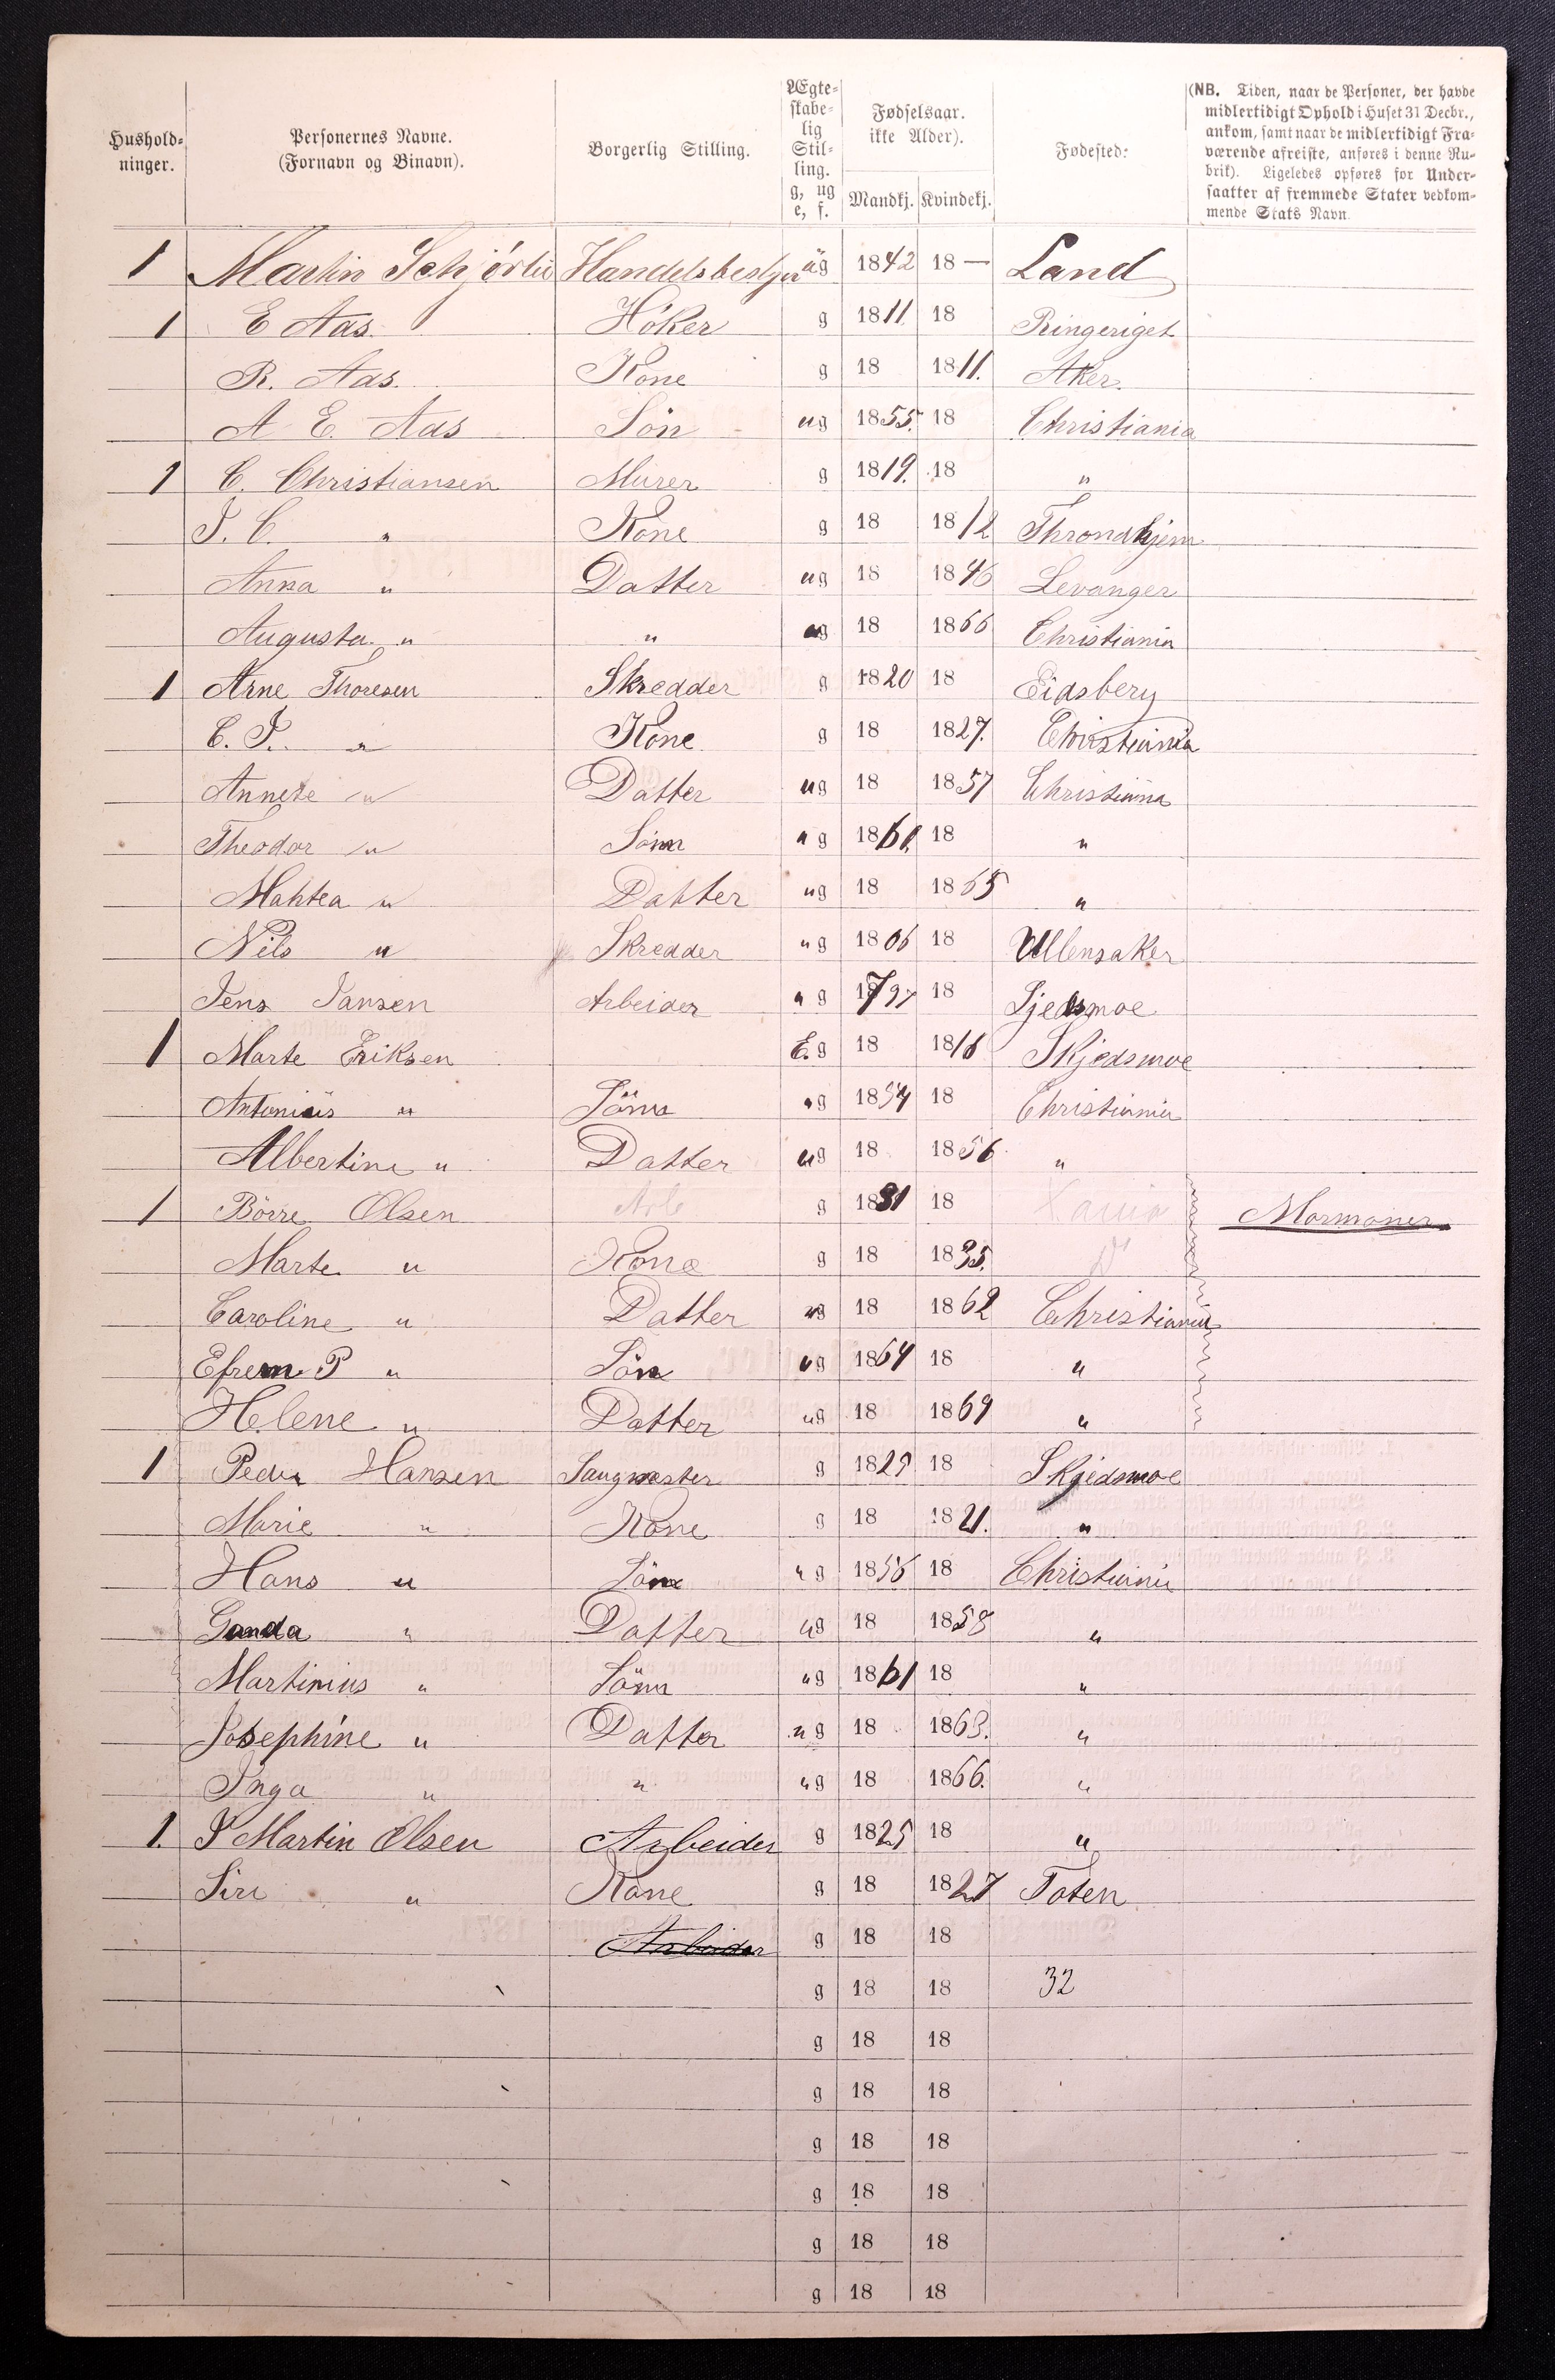 Hushold-
ninger.
Personernes Navne.
(Fornavn og Binavn).
Borgerlig Stilling.
Ægte-
skabe-
lig
Stil-
ling.
g, ug
e, f.
Fødselsaar.
ikke Alder).
Mandkj. Kvindekj.
Fødested:
(NB. Tiden, naar de Personer, der havde
midlertidigt Ophold i Huset 31 Decbr.,
ankom, samt naar de midlertidigt Fra-
værende afreiste, anføres i denne Ru-
brik). Ligeledes opføres for Under-
saatter af fremmede Stater vedkom-
mende Stats Navn.
1 Martin ug 1842 18 — Land
1 E Aas. Höker g 1811. 18 Ringeriget
R. Aas. Kone g 18 1811. Aker.
A E. Aas Sön ug 1855. 18 Christiania
1 C. Christiansen Murer g 1819. 18 "
J. C. " Kone g 18 1812 Throndhjem
Anna " Datter ug 18 1846 Levanger
Augusta " " ug 18 1866 Christiania
1 Arne Thoresen Skredder g 1820 18 Eidsberg
C. J. " Kone g 18 1827. Christiania
Annete " Datter ug 18 1857 Christiania
Theodor " Sönn ug 1860. 18 "
Mahtea " Datter ug 18 1865 "
Nils " Skredder ug 1806 18 Ullensaker
Jens Jansen Arbeider ug 1797 18 Sjedsmoe
1 Marte Eriksen E. g 18 1816 Skjedsmoe
Antonius " Sönn ug 1854 18 Christiania
Albertine " Datter ug 18 1856 "
1 Börre Olsen Arb g 1831 18 Xania Mormoner
Marte " Kone g 18 1835. D°
Caroline " Datter ug 18 1862 Christiania
Efrem P " Sön ug 1864 18 "
Helene " Datter ug 18 1869 "
1 Peder Hansen Saugmester g 1829 18 Skjedsmoe
Marie " Kone g 18 1821. "
Hans " Sönn ug 1856 18 Christiania
Ganda " Datter ug 18 1858 "
Martinius " Sönn ug 1861 18 "
Josephine " Datter ug 18 1863. "
Inga " " ug 18 1866. "
1. J Martin Olsen Arbeider g 1825 18 "
Siri " Kone g 18 1827 Toten
Arbeider g 18 18
g 18 18 32
g 18 18
g 18 18
g 18 18
g 18 18
g 18 18
g 18 18